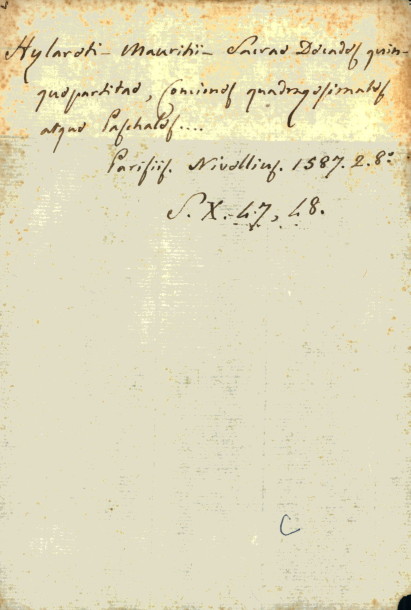 Hylareti - Mauritii - Sacrae Decades quin-
quepartitae, Conciones quadragesimales
atque Paschales....
Parisiis. Nivellius. 1587. 2. 8°
S. X. 47, 48.
C